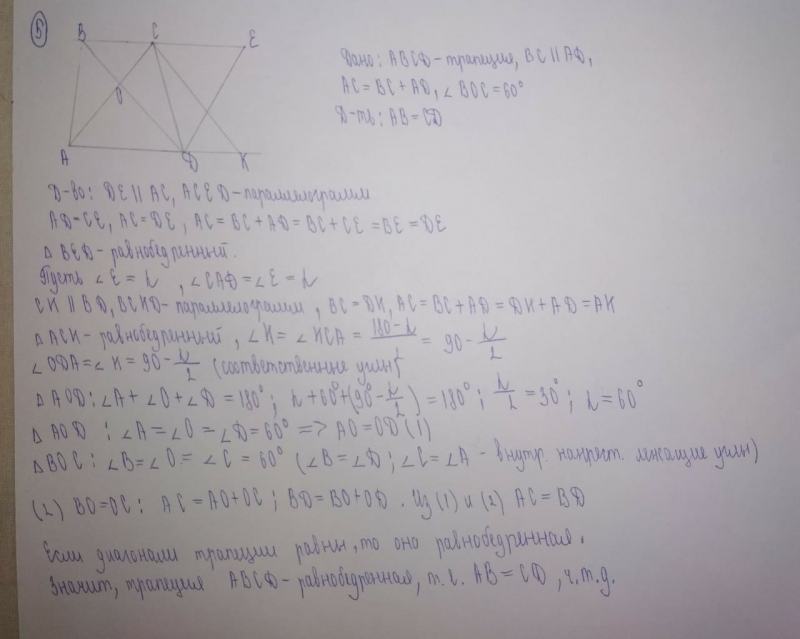 5
B C E
O
A D K
Дано: ABCD - трапеция, BC || AD,
AC = BC + AD, ∠ BOC = 60°
Д-ть: AB = CD
Д-во: DE || AC, ACED - параллелограмм
AD = CE, AC = DE, AC = BC + AD = BC + CE = BE = DE
Δ BED - равнобедренный.
Пусть ∠E = α, ∠CAD = ∠E = α
CK || BD, BCKD - параллелограмм, BC = DK, AC = BC + AD = DK + AD = AK
Δ ACK - равнобедренный, ∠K = ∠KCA = (180 - α)/2 = 90 - α/2
∠ODA = ∠K = 90 - α/2 (соответственные углы)
Δ AOD: ∠A + ∠O + ∠D = 180°; α + 60° + (90° - α/2) = 180°; α/2 = 30°; α = 60°
Δ AOD: ∠A = ∠O = ∠D = 60° => AO = OD (1)
Δ BOC: ∠B = ∠O = ∠C = 60° (∠B = ∠D; ∠C = ∠A - внутр. накрест. лежащие углы)
(2) BO = OC: AC = AO + OC; BD = BO + OD. Из (1) и (2) AC = BD
Если диагонали трапеции равны, то она равнобедренная.
Значит, трапеция ABCD - равнобедренная, т.е. AB = CD, ч.т.д.